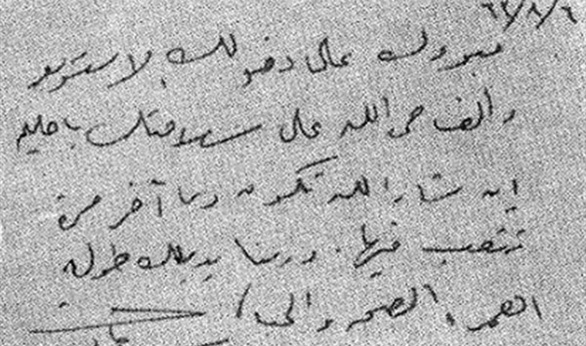 ٦٧/٨/٦
مبروك على دخولك الاستوديو
والف حمد الله على سلامتك يا حليم
إن شاء الله تكون دى آخر مرة
تتعب فيها. وربنا يديلك طولة
العمر، الصحه و